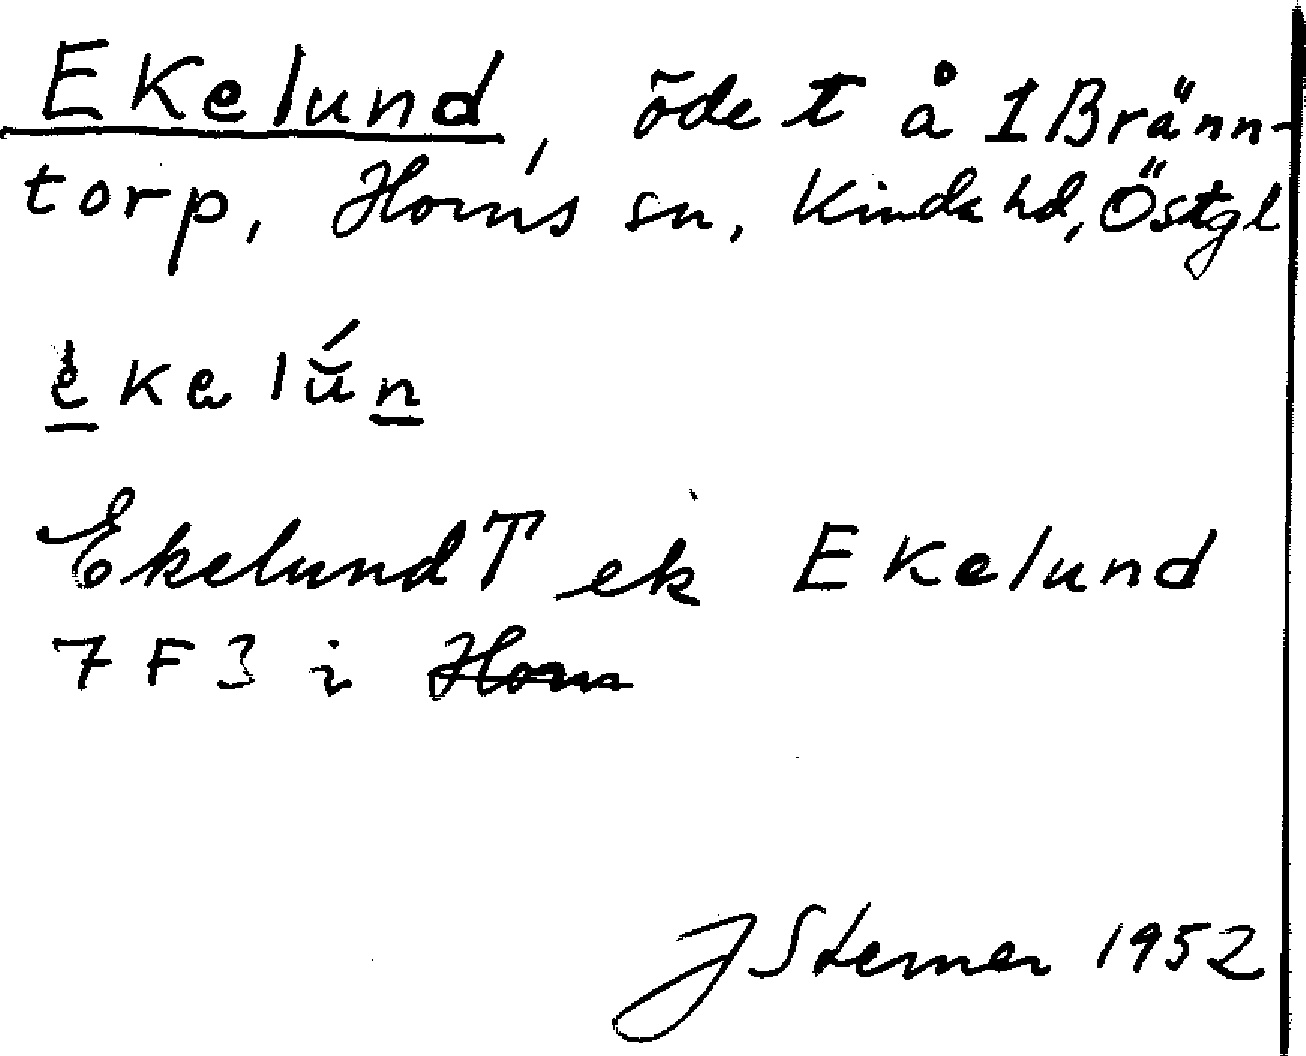 Ekelund, öde t å 1 Bränn-
torp, Horns sn, Kinda hd, Östgl
ekelún
Ekelund T ek Ekelund
7 F 3 i Horn
J Sterner 1952